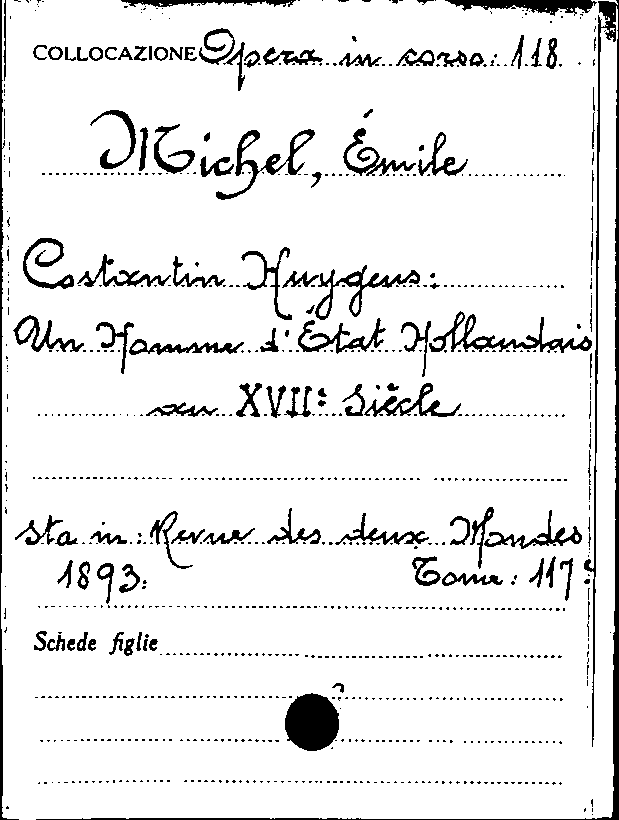 COLLOCAZIONE Opera in corso: 118.
Michel, Émile
Costantin Huygens:
Un Homme d'État Hollandais
au XVIIe Siècle
sta in: Revue des deux Mondes
1893: Tome: 117e
Schede figlie